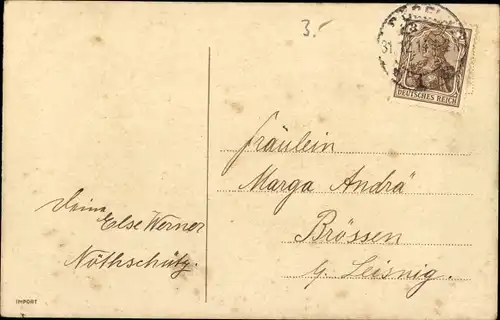 3.-
DEUTSCHES REICH
Fräulein
Marga Andrä
Brössen
b. Leisnig.
Deine
Else Werner
Nöthschütz.
IMPORT